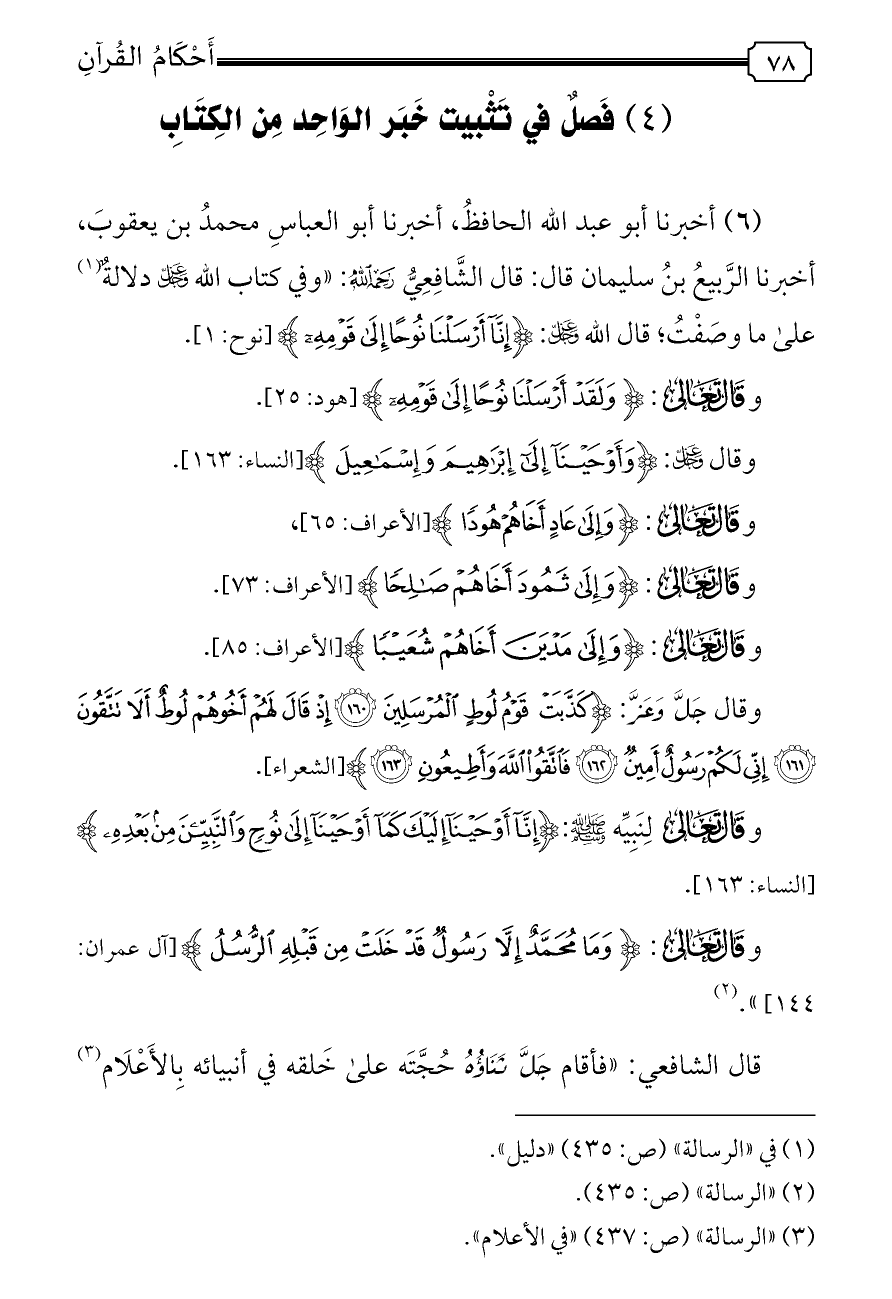 ٧٨ أَحْكَامُ القُرآنِ
(٤) فَصلٌ في تَثْبيت خَبَر الوَاحِد مِن الكِتَابِ
(٦) أخبرنا أبو عبد الله الحافظُ، أخبرنا أبو العباسِ محمدُ بن يعقوبَ،
أخبرنا الرَّبيعُ بنُ سليمان قال: قال الشَّافعِيُّ رَحِمَهُ اللَّهُ: «وفي كتاب الله عَزَّ وَجَلَّ دلالةٌ(١)
علىٰ ما وصَفْتُ؛ قال الله عَزَّ وَجَلَّ: ﴿إِنَّآ أَرْسَلْنَا نُوحًا إِلَىٰ قَوْمِهِۦ﴾ [نوح: ١].
وقَالَ تَعَالَىٰ: ﴿وَلَقَدْ أَرْسَلْنَا نُوحًا إِلَىٰ قَوْمِهِۦ﴾ [هود: ٢٥].
وقال عَزَّ وَجَلَّ: ﴿وَأَوْحَيْنَآ إِلَىٰٓ إِبْرَٰهِيمَ وَإِسْمَٰعِيلَ﴾ [النساء: ١٦٣].
وقَالَ تَعَالَىٰ: ﴿وَإِلَىٰ عَادٍ أَخَاهُمْ هُودًا﴾ [الأعراف: ٦٥]،
وقَالَ تَعَالَىٰ: ﴿وَإِلَىٰ ثَمُودَ أَخَاهُمْ صَٰلِحًا﴾ [الأعراف: ٧٣].
وقَالَ تَعَالَىٰ: ﴿وَإِلَىٰ مَدْيَنَ أَخَاهُمْ شُعَيْبًا﴾ [الأعراف: ٨٥].
وقال جَلَّ وَعَزَّ: ﴿كَذَّبَتْ قَوْمُ لُوطٍ ٱلْمُرْسَلِينَ ١٦٠ إِذْ قَالَ لَهُمْ أَخُوهُمْ لُوطٌ أَلَا تَتَّقُونَ
١٦١ إِنِّى لَكُمْ رَسُولٌ أَمِينٌ ١٦٢ فَٱتَّقُوا۟ ٱللَّهَ وَأَطِيعُونِ ١٦٣﴾ [الشعراء].
وقَالَ تَعَالَىٰ لِنَبِيِّه ﷺ: ﴿إِنَّآ أَوْحَيْنَآ إِلَيْكَ كَمَآ أَوْحَيْنَآ إِلَىٰ نُوحٍ وَٱلنَّبِيِّـۧنَ مِنۢ بَعْدِهِۦ﴾
[النساء: ١٦٣].
وقَالَ تَعَالَىٰ: ﴿وَمَا مُحَمَّدٌ إِلَّا رَسُولٌ قَدْ خَلَتْ مِن قَبْلِهِ ٱلرُّسُلُ﴾ [آل عمران:
١٤٤]».(٢)
قال الشافعي: «فأقام جَلَّ ثَنَاؤُهُ حُجَّتَه علىٰ خَلقه في أنبيائه بِالأَعْلَام(٣)
(١) في «الرسالة» (ص: ٤٣٥) «دليل».
(٢) «الرسالة» (ص: ٤٣٥).
(٣) «الرسالة» (ص: ٤٣٧) «في الأعلام».